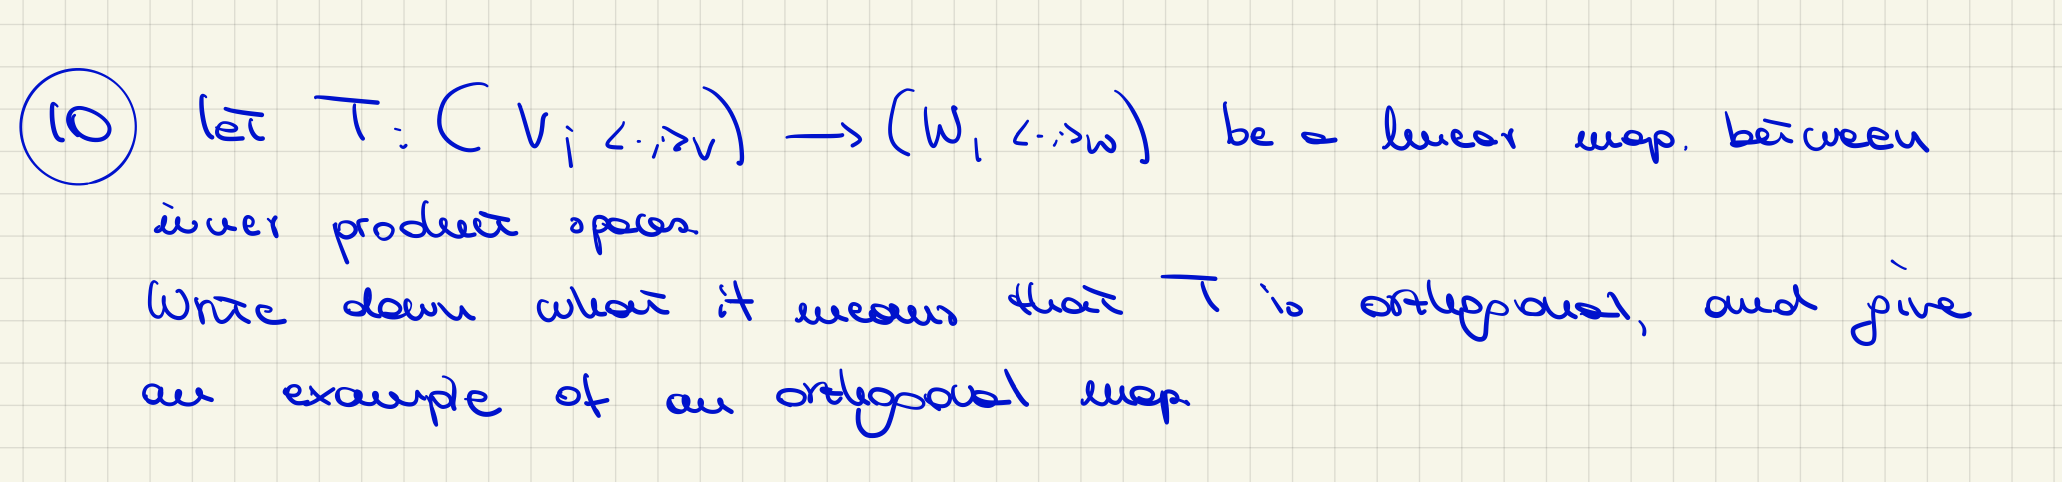 10 let T: (V, <.,.>_V) → (W, <.,.>_W) be a linear map. between
inner product spaces.
Write down what it means that T is orthogonal, and give
an example of an orthogonal map.